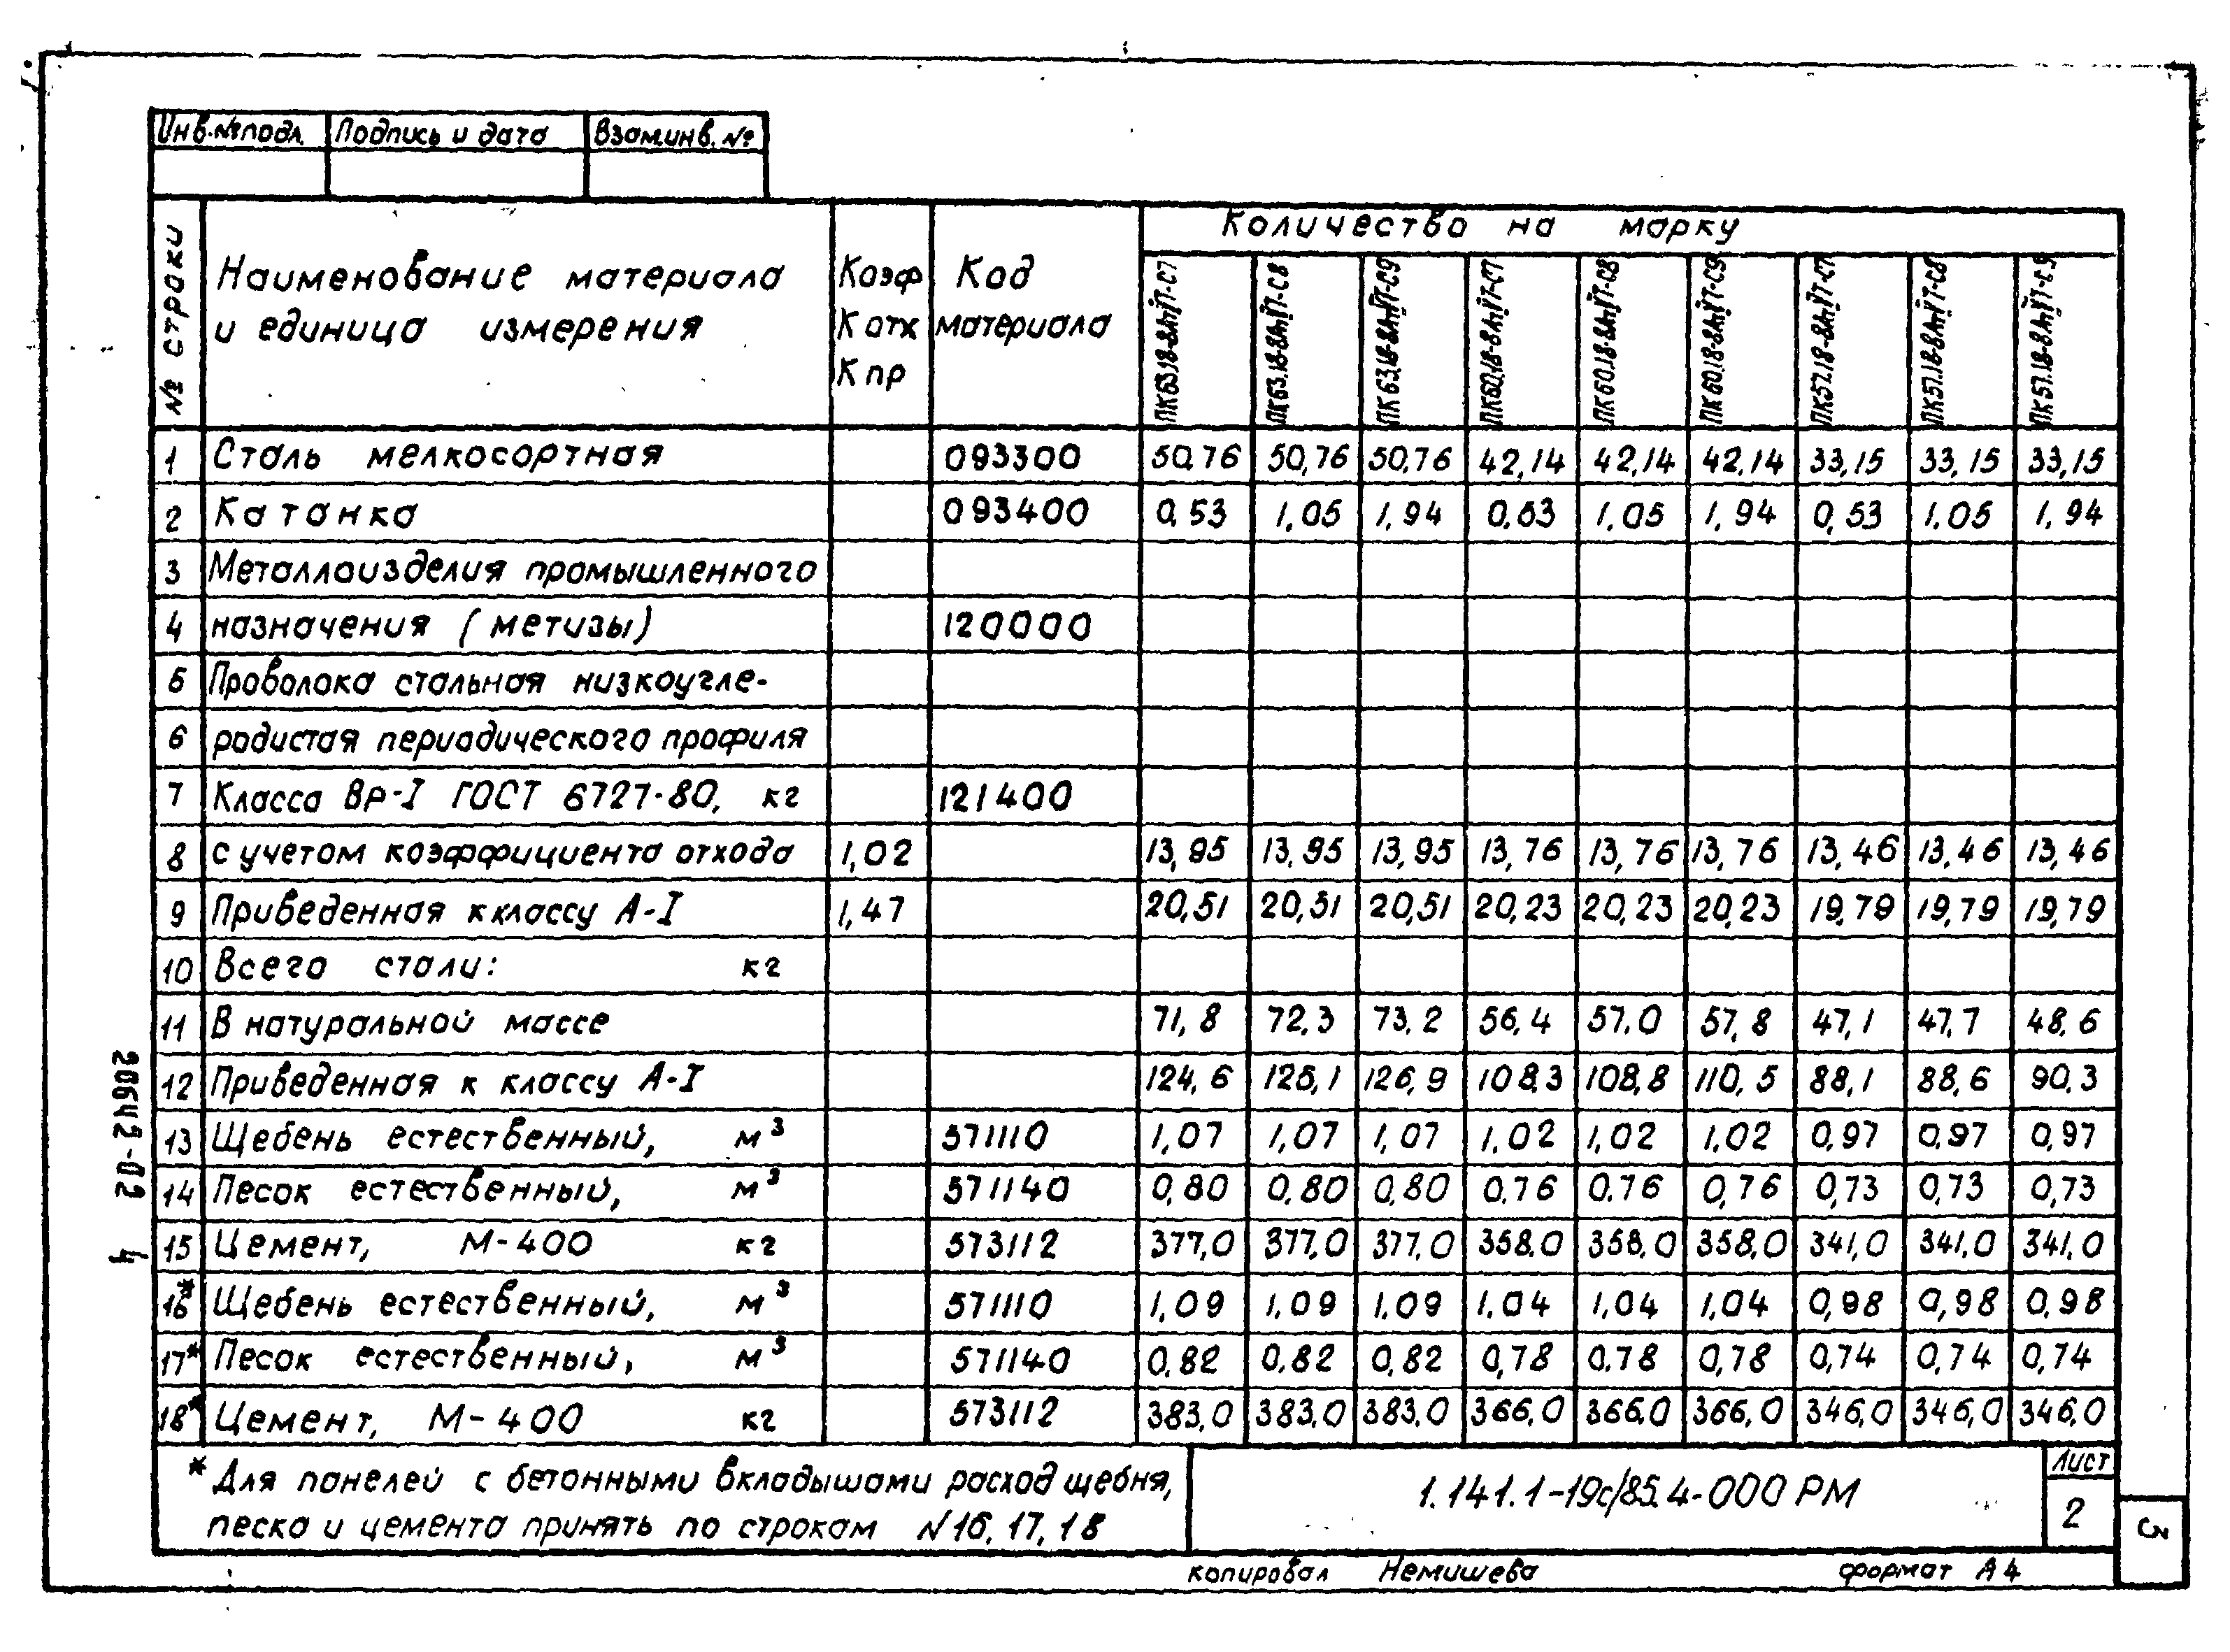 Инв.№подл. Подпись и дата Взам.инв.№
№ строки
Наименование материала
и единица измерения
Коэф
К отх
К пр
Код
материала
Количество на марку
ПК63.18-8АтVТ-С7 ПК63.18-8АтVТ-С8 ПК63.18-8АтVТ-С9 ПК60.18-8АтVТ-С7 ПК60.18-8АтVТ-С8 ПК60.18-8АтVТ-С9 ПК57.18-8АтVТ-С7 ПК57.18-8АтVТ-С8 ПК57.18-8АтVТ-С9
1 Сталь мелкосортная 093300 50,76 50,76 50,76 42,14 42,14 42,14 33,15 33,15 33,15
2 Катанка 093400 0,53 1,05 1,94 0,53 1,05 1,94 0,53 1,05 1,94
3 Металлоизделия промышленного
4 назначения (метизы) 120000
5 Проволока стальная низкоугле-
6 родистая периодического профиля
7 Класса Вр-I ГОСТ 6727-80, кг 121400
8 с учетом коэффициента отхода 1,02 13,95 13,95 13,95 13,76 13,76 13,76 13,46 13,46 13,46
9 Приведенная к классу А-I 1,47 20,51 20,51 20,51 20,23 20,23 20,23 19,79 19,79 19,79
10 Всего стали: кг
11 В натуральной массе 71,8 72,3 73,2 56,4 57,0 57,8 47,1 47,7 48,6
12 Приведенная к классу А-I 124,6 125,1 126,9 108,3 108,8 110,5 88,1 88,6 90,3
13 Щебень естественный, м³ 571110 1,07 1,07 1,07 1,02 1,02 1,02 0,97 0,97 0,97
14 Песок естественный, м³ 571140 0,80 0,80 0,80 0,76 0,76 0,76 0,73 0,73 0,73
15 Цемент, М-400 кг 573112 377,0 377,0 377,0 358,0 358,0 358,0 341,0 341,0 341,0
16* Щебень естественный, м³ 571110 1,09 1,09 1,09 1,04 1,04 1,04 0,98 0,98 0,98
17* Песок естественный, м³ 571140 0,82 0,82 0,82 0,78 0,78 0,78 0,74 0,74 0,74
18* Цемент, М-400 кг 573112 383,0 383,0 383,0 366,0 366,0 366,0 346,0 346,0 346,0
* Для панелей с бетонными вкладышами расход щебня,
песка и цемента принять по строкам №16, 17, 18
1.141.1-19с/85.4-000 РМ
Лист
2
3
копировал Немишева формат А4
20642-02 4